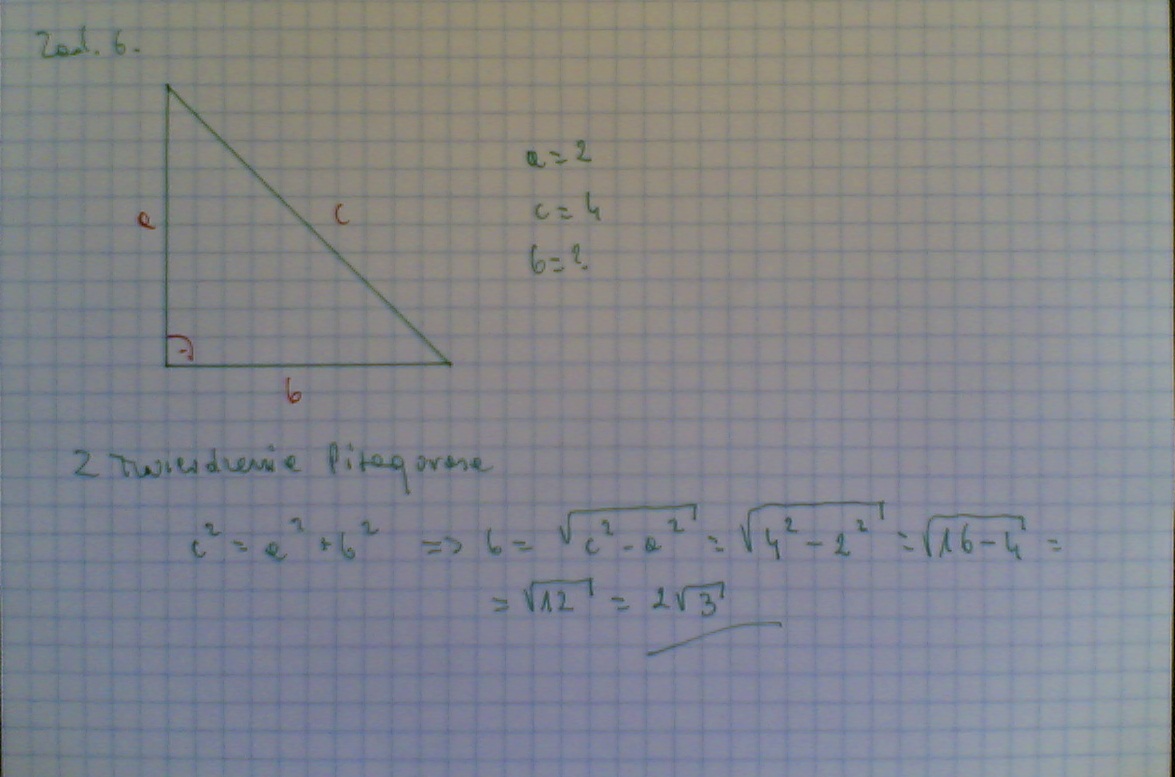 Zad. 6.
a
c
b
a = 2
c = 4
b = ?
Z Twierdzenia Pitagorasa
c² = a² + b² => b = √(c² - a²) = √(4² - 2²) = √(16 - 4) =
= √12 = 2√3